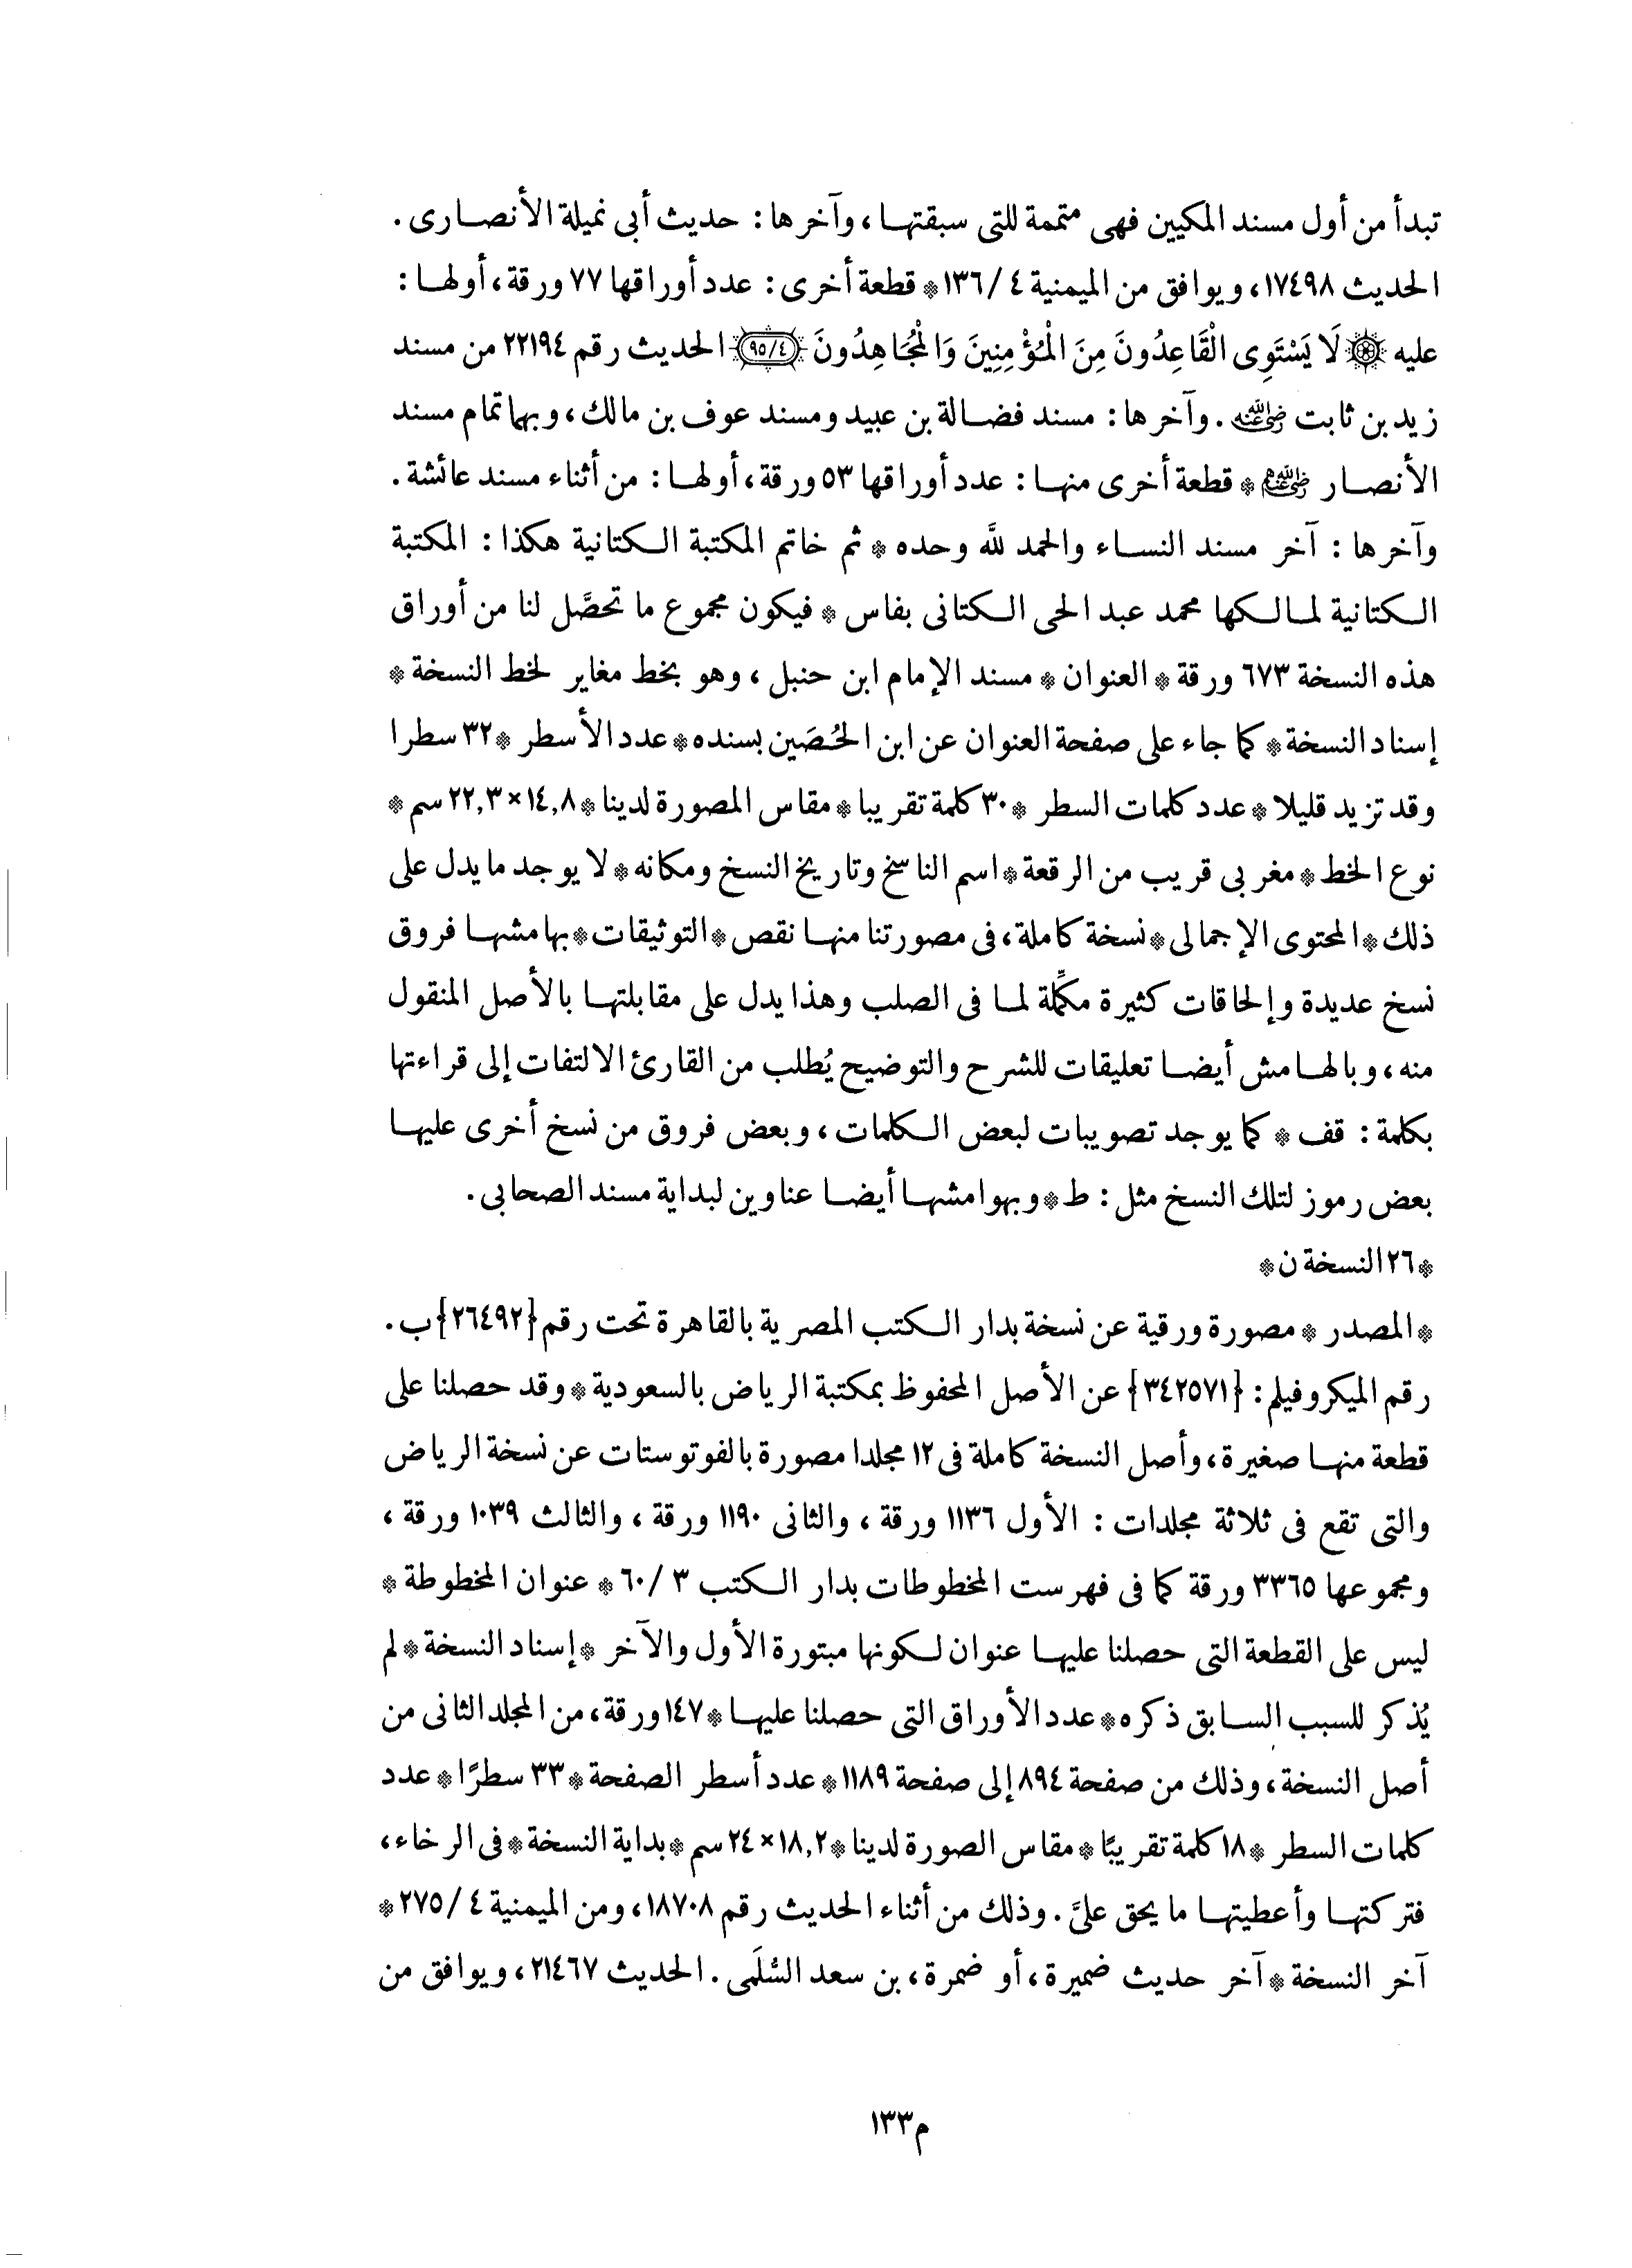 تبدأ من أول مسند المكيين فهى متممة للتى سبقتها، وآخرها: حديث أبى نميلة الأنصارى.
الحديث ١٧٤٩٨، ويوافق من الميمنية ٤/١٣٦ * قطعة أخرى: عدد أوراقها ٧٧ ورقة، أولها:
عليه ۞ لَا يَسْتَوِى الْقَاعِدُونَ مِنَ الْمُؤْمِنِينَ وَالْمُجَاهِدُونَ (٩٥/٤) الحديث رقم ٢٢١٩٤ من مسند
زيد بن ثابت رضي الله عنه. وآخرها: مسند فضالة بن عبيد ومسند عوف بن مالك، وبهما تمام مسند
الأنصار رضي الله عنهم * قطعة أخرى منها: عدد أوراقها ٥٣ ورقة، أولها: من أثناء مسند عائشة.
وآخرها: آخر مسند النساء والحمد لله وحده * ثم خاتم المكتبة الكتانية هكذا: المكتبة
الكتانية لمالكها محمد عبد الحى الكتانى بفاس * فيكون مجموع ما تحصَّل لنا من أوراق
هذه النسخة ٦٧٣ ورقة * العنوان * مسند الإمام ابن حنبل، وهو بخط مغاير لخط النسخة *
إسناد النسخة * كما جاء على صفحة العنوان عن ابن الحُصَين بسنده * عدد الأسطر * ٣٢ سطرا
وقد تزيد قليلا * عدد كلمات السطر * ٣٠ كلمة تقريبا * مقاس المصورة لدينا * ١٤,٨ × ٢٢,٣ سم *
نوع الخط * مغربى قريب من الرقعة * اسم الناسخ وتاريخ النسخ ومكانه * لا يوجد ما يدل على
ذلك * المحتوى الإجمالى * نسخة كاملة، فى مصورتنا منها نقص * التوثيقات * بهامشها فروق
نسخ عديدة وإلحاقات كثيرة مكمِّلة لما فى الصلب وهذا يدل على مقابلتها بالأصل المنقول
منه، وبالهامش أيضا تعليقات للشرح والتوضيح يُطلب من القارئ الالتفات إلى قراءتها
بكلمة: قف * كما يوجد تصويبات لبعض الكلمات، وبعض فروق من نسخ أخرى عليها
بعض رموز لتلك النسخ مثل: ط * وبهوامشها أيضا عناوين لبداية مسند الصحابى.
* ٢٦ النسخة ن *
* المصدر * مصورة ورقية عن نسخة بدار الكتب المصرية بالقاهرة تحت رقم {٢٦٤٩٢} ب.
رقم الميكروفيلم: {٣٤٢٥٧١} عن الأصل المحفوظ بمكتبة الرياض بالسعودية * وقد حصلنا على
قطعة منها صغيرة، وأصل النسخة كاملة فى ١٢ مجلدا مصورة بالفوتوستات عن نسخة الرياض
والتى تقع فى ثلاثة مجلدات: الأول ١١٣٦ ورقة، والثانى ١١٩٠ ورقة، والثالث ١٠٣٩ ورقة،
ومجموعها ٣٣٦٥ ورقة كما فى فهرست المخطوطات بدار الكتب ٣/٦٠ * عنوان المخطوطة *
ليس على القطعة التى حصلنا عليها عنوان لكونها مبتورة الأول والآخر * إسناد النسخة * لم
يُذكر للسبب السابق ذكره * عدد الأوراق التى حصلنا عليها * ١٤٧ ورقة، من المجلد الثانى من
أصل النسخة، وذلك من صفحة ٨٩٤ إلى صفحة ١١٨٩ * عدد أسطر الصفحة * ٣٣ سطرًا * عدد
كلمات السطر * ١٨ كلمة تقريبًا * مقاس الصورة لدينا * ١٨,٢ × ٢٤ سم * بداية النسخة * فى الرخاء،
فتركتها وأعطيتها ما يحق علىَّ. وذلك من أثناء الحديث رقم ١٨٧٠٨، ومن الميمنية ٤/٢٧٥ *
آخر النسخة * آخر حديث ضميرة، أو ضمرة، بن سعد السُّلَمى. الحديث ٢١٤٦٧، ويوافق من
م١٣٣